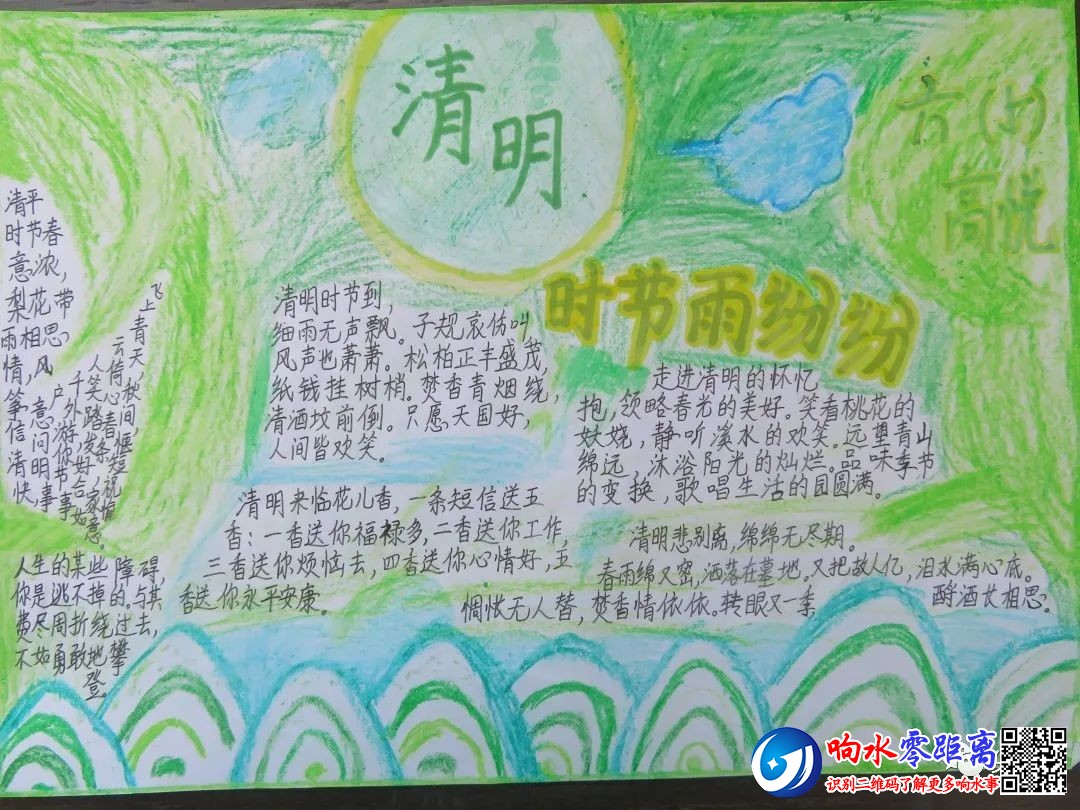 清明
六(1)
高悦
时节雨纷纷
清平
时节春
意浓,
梨花带
雨相思
情,风
筝
飞
上青天,
清明时节到,
细雨无声飘。子规哀伤叫
风声也萧萧。松柏正丰盛茂,
纸钱挂树梢。焚香青烟绕,
清酒坟前倒。只愿天国好,
人间皆欢笑。
走进清明的怀忆
抱,领略春光的美好。笑看桃花的
妖娆,静听溪水的欢笑。远望青山
绵远,沐浴阳光的灿烂。品味季节
的变换,歌唱生活的团圆满。
清明来临花儿香,一条短信送五
香:一香送你福禄多,二香送你工作,
三香送你烦恼去,四香送你心情好,五
香送你永平安康。
清明悲别离,绵绵无尽期。
春雨绵又密,洒落在墓地。又把故人亿,泪水满心底。
惆怅无人替,焚香情依依。转眼又一季
酹酒长相思。
人生的某些障碍,
你是逃不掉的。与其
费尽周折绕过去,
不如勇敢地攀
登。
响水零距离
识别二维码了解更多响水事